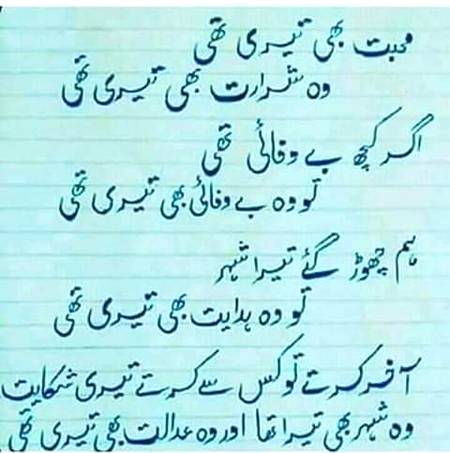 محبت بھی تیری تھی
وہ شرارت بھی تیری تھی
اگر کچھ بے وفائی تھی
تو وہ بے وفائی بھی تیری تھی
ہم چھوڑ گئے تیرا شہر
تو وہ ہدایت بھی تیری تھی
آخر کرتے تو کس سے کرتے تیری شکایت
وہ شہر بھی تیرا تھا اور وہ عدالت بھی تیری تھی